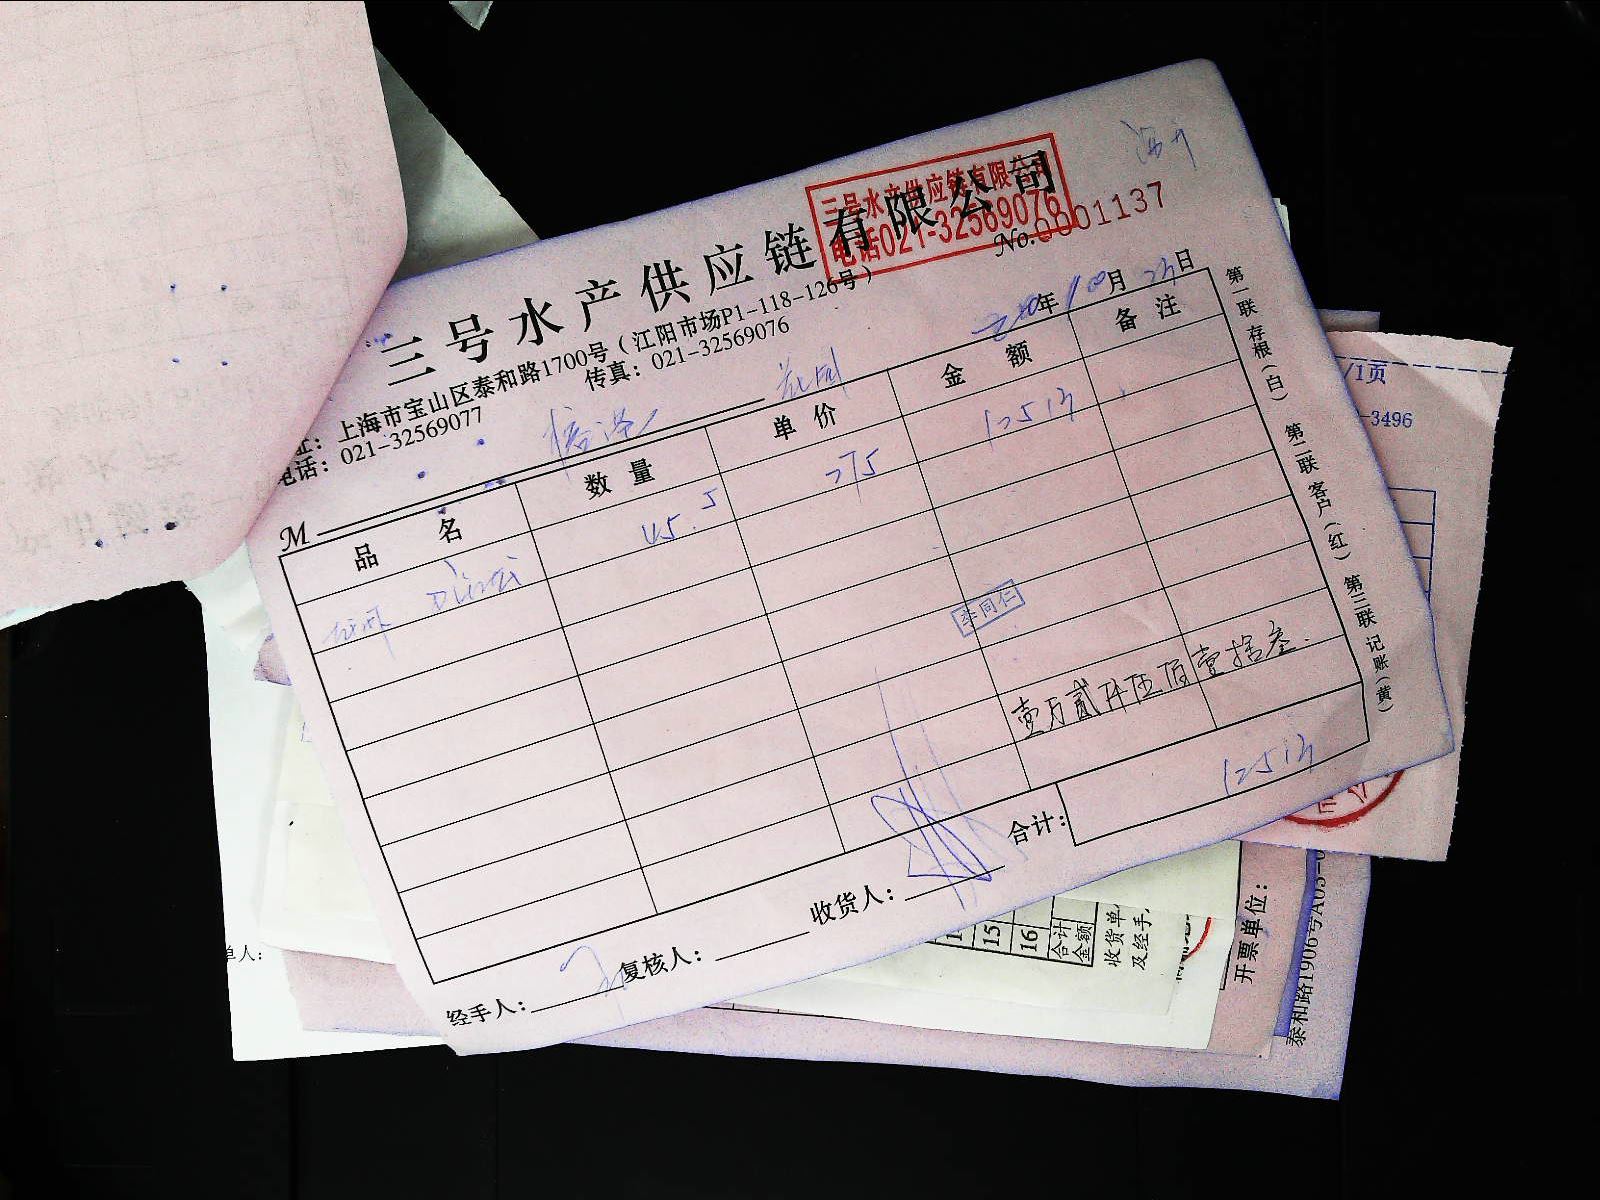 三号水产供应链有限公司
三号水产供应链有限公司
电话021-32569076
No.0001137
址：上海市宝山区泰和路1700号（江阳市场P1-118-126号）
电话：021-32569077 传真：021-32569076
年10月23日
M
品名 数量 单价 金额 备注
45.5 275 12513
李同仁
壹万贰仟伍佰壹拾叁
合计： 12513
经手人： 复核人： 收货人：
第一联 存根（白） 第二联 客户（红） 第三联 记账（黄）
/1页
-3496
单人：
15
16
合计
金额
收货单
及经手
开票单位：
泰和路1906号A05-0